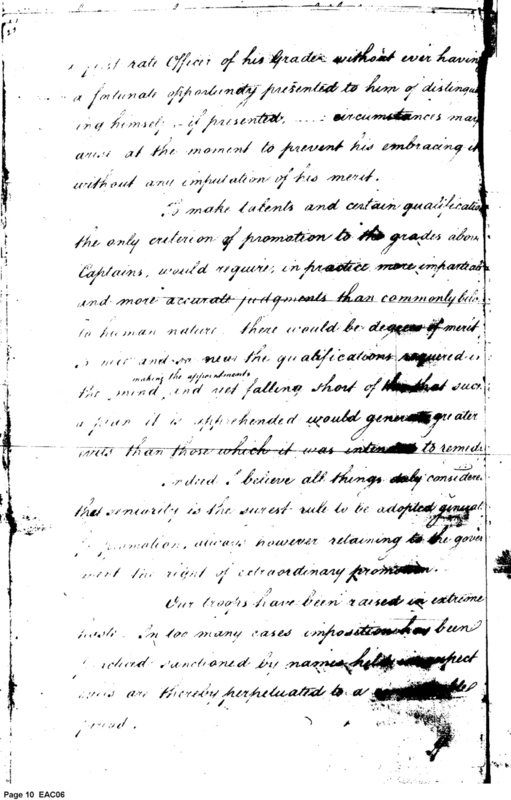 rate Officer of his Grade without ever having
a fortunate opportunity presented to him of distingu
ing himself if presented, circumstances may
arise at the moment to prevent his embracing it
without any imputation of his merit.
To make talents and certain qualificatio
the only criterion of promotion to the grades above
Captains, would require, in practice more impartial
and more accurate judgments than commonly belo
to human nature. there would be degrees of merit
so nice and so near the qualifications required in
making the appointments
the mind, and yet falling short of that such
a plan it is apprehended would generate greater
evils than those which it was intended to remedi
Indeed I believe all things duly considered
that seniority is the surest rule to be adopted general
promotion, always however retaining to the gover
ment the right of extraordinary promotion.
Our troops have been raised in extreme
haste. In too many cases imposition has been
sanctioned by names held in respect
are thereby perpetuated to a
period.
Page 10 EAC06